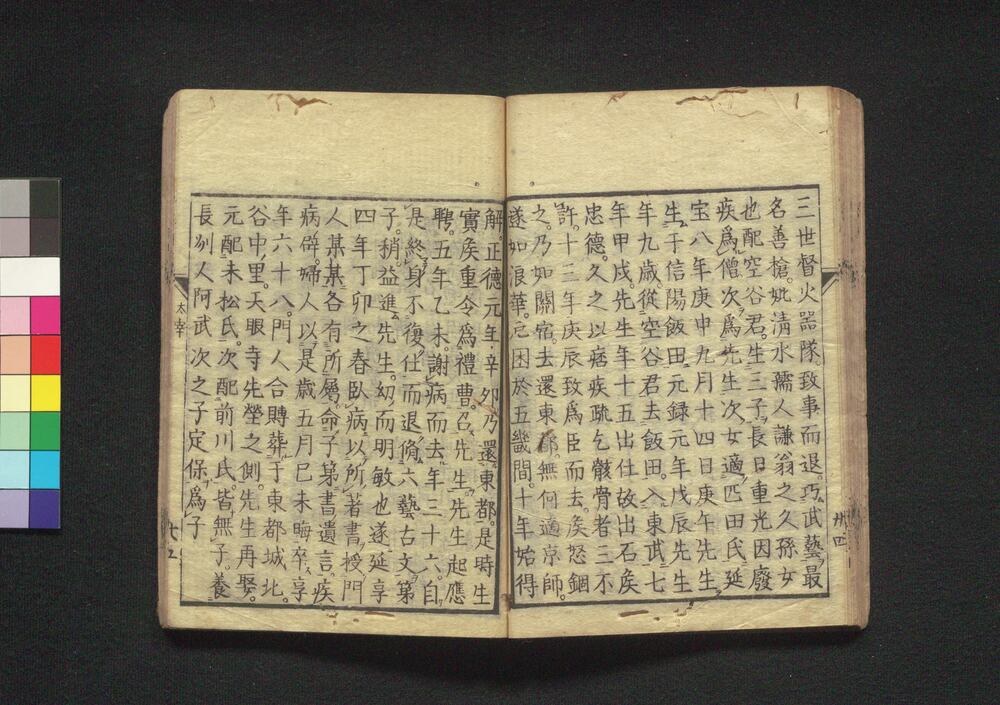 三世督火器隊致事而退巧武藝最
名善槍妣清水孺人謙翁之久孫女
也配空谷君生三子長日重光因廢
疾爲僧次爲先生次女適匹田氏延
宝八年庚申九月十四日庚午先生
生于信陽飯田元録元年戊辰先生
年九歳從空谷君去飯田入東武七
年甲戌先生年十五出仕故出石矦
忠德久之以痞疾疏乞骸骨者三不
許十三年庚辰致爲臣而去矦怒錮
之乃如關宿去還東都無何適京師
遂如浪華它困於五畿間十年始得
解正德元年辛卯乃還東都是時生
實矦重令爲禮曹召先生先生起應
聘五年乙未謝病而去年三十六自
是終身不復仕而退脩六藝古文第
子稍益進先生幼而明敏也遂延享
四年丁卯之春臥病以所著書授門
人某某各有所屬命子第書遺言疾
病辟婦人以是歳五月巳未晦卒享
年六十八門人合賻葬于東都城北
谷中里天眼寺先塋之側先生再娶
元配末松氏次配前川氏皆無子養
長刕人阿武次之子定保爲子
太宰
卅四